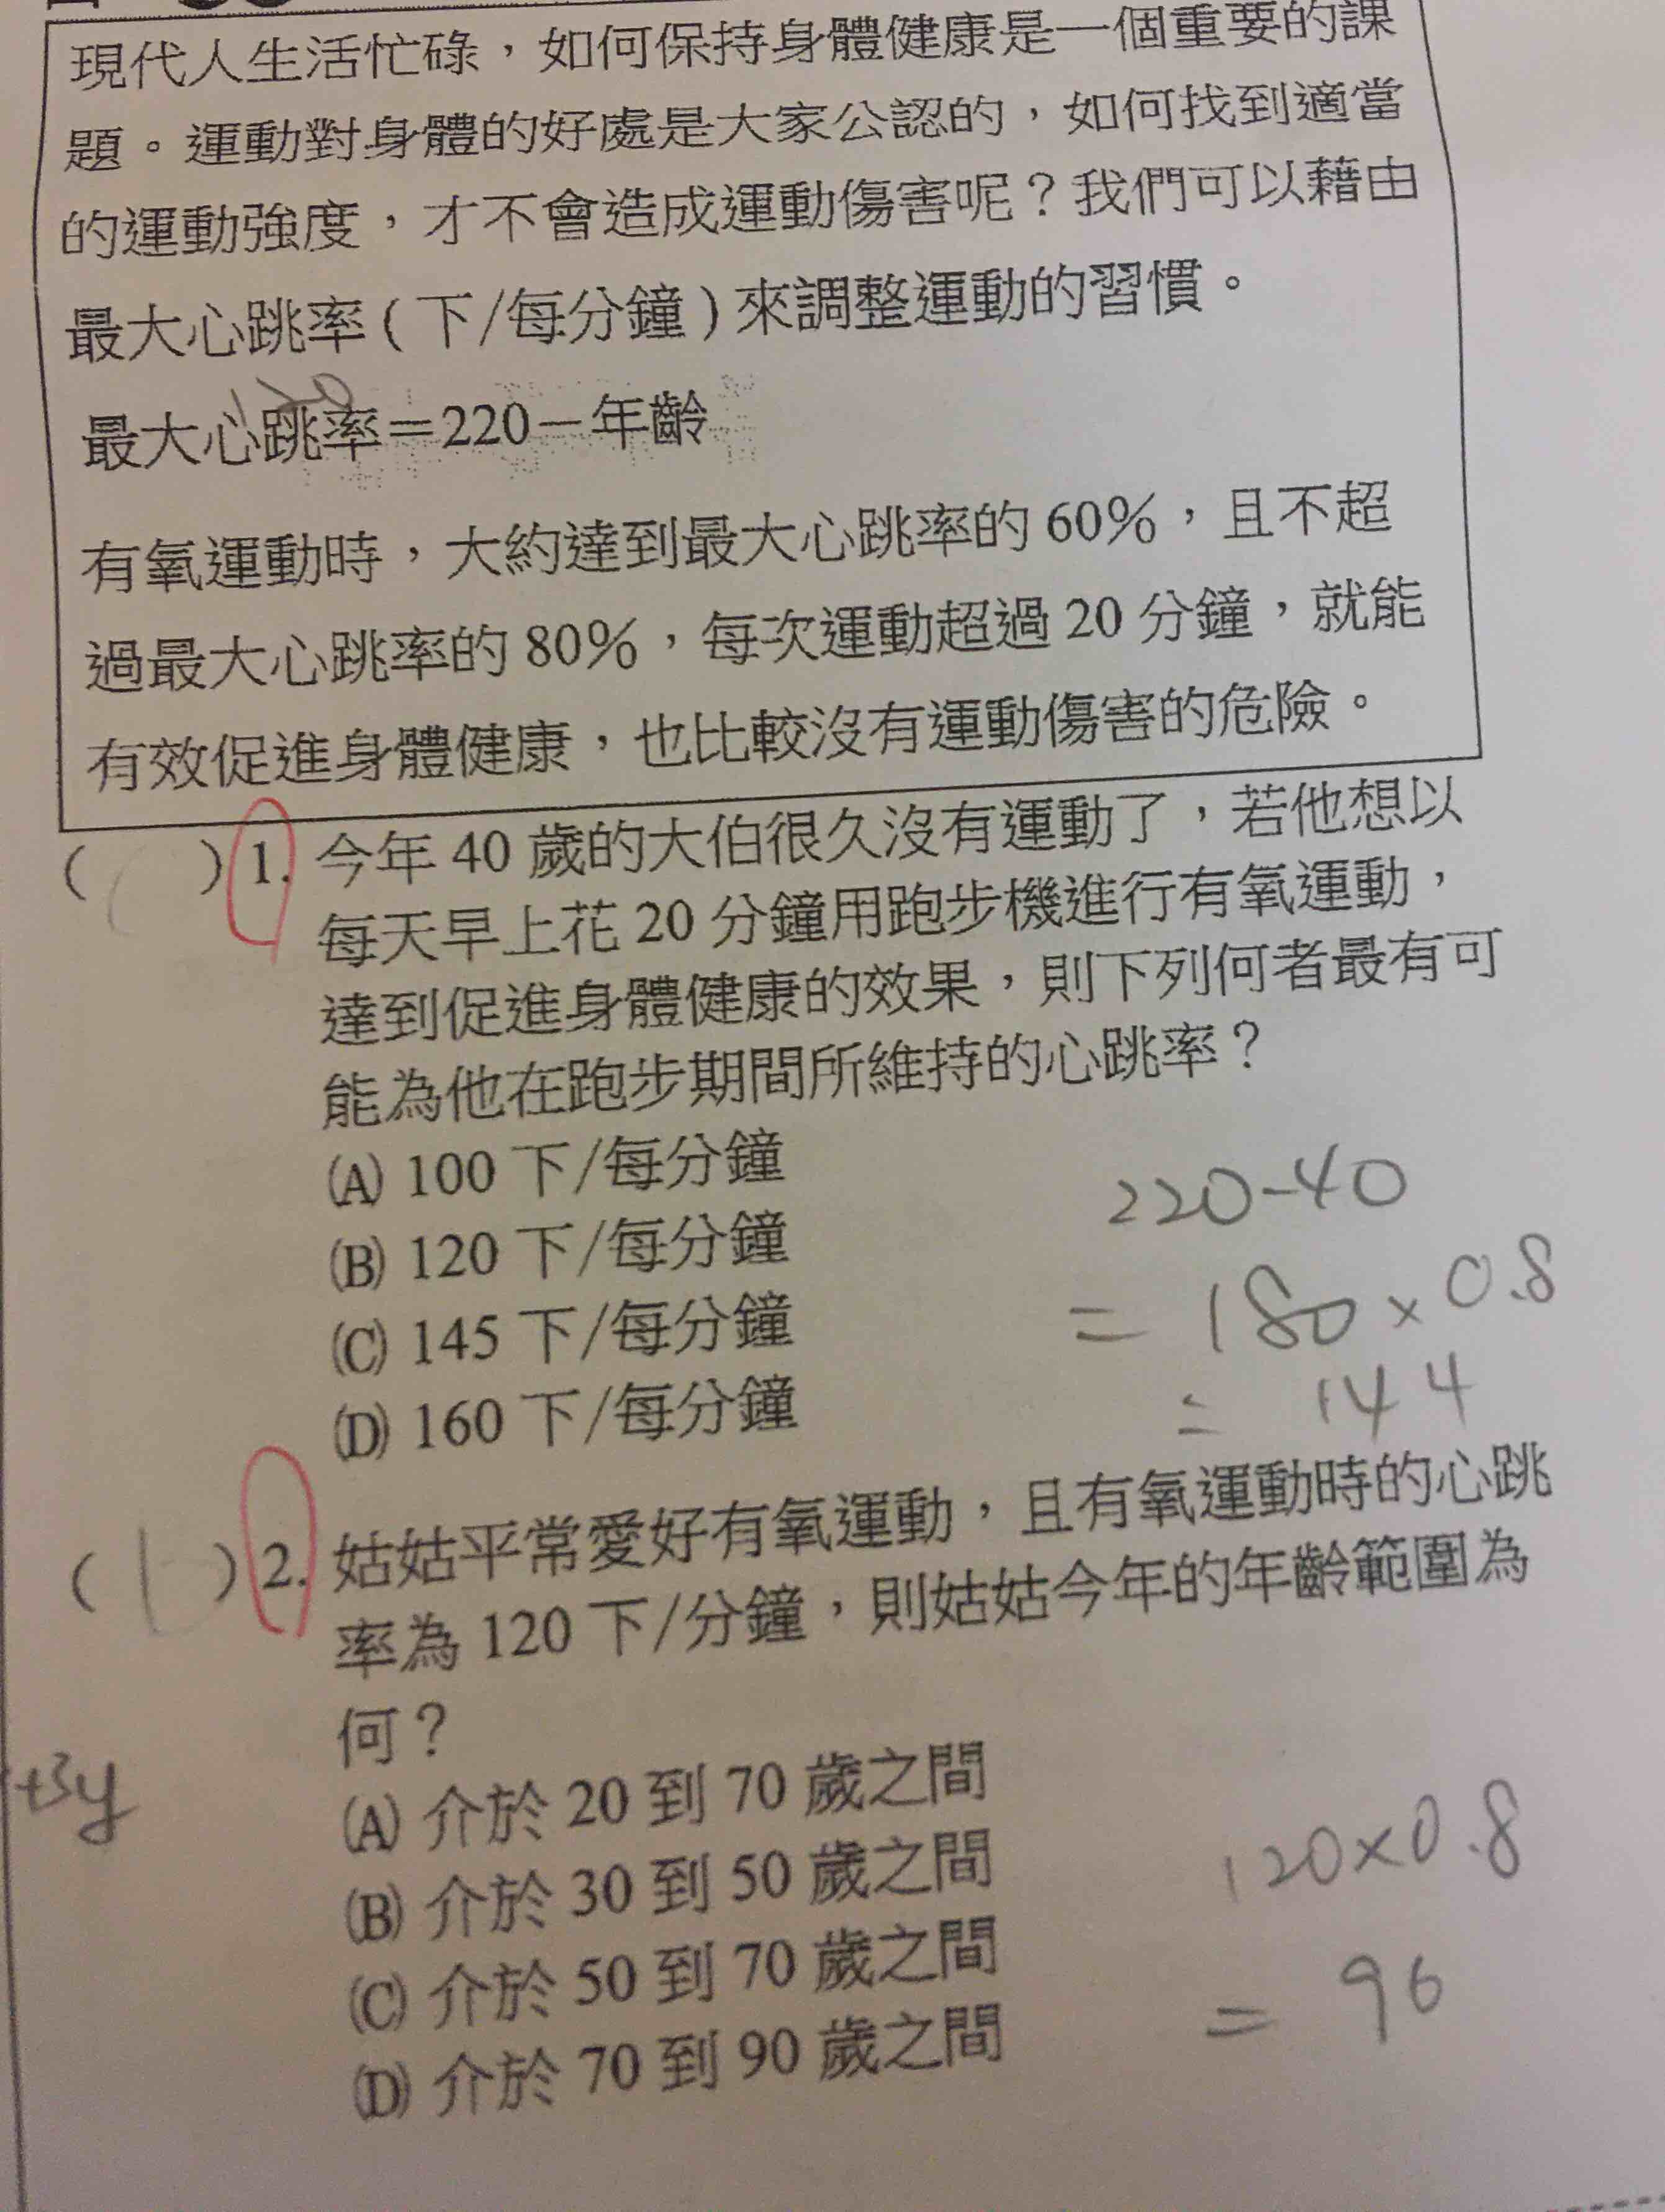 現代人生活忙碌，如何保持身體健康是一個重要的課
題。運動對身體的好處是大家公認的，如何找到適當
的運動強度，才不會造成運動傷害呢？我們可以藉由
最大心跳率(下/每分鐘)來調整運動的習慣。
最大心跳率＝220－年齡
有氧運動時，大約達到最大心跳率的 60%，且不超
過最大心跳率的 80%，每次運動超過 20 分鐘，就能
有效促進身體健康，也比較沒有運動傷害的危險。
( )1. 今年 40 歲的大伯很久沒有運動了，若他想以
每天早上花 20 分鐘用跑步機進行有氧運動，
達到促進身體健康的效果，則下列何者最有可
能為他在跑步期間所維持的心跳率？
(A) 100 下/每分鐘
(B) 120 下/每分鐘
(C) 145 下/每分鐘
(D) 160 下/每分鐘
220-40
= 180×0.8
= 144
( )2. 姑姑平常愛好有氧運動，且有氧運動時的心跳
率為 120 下/分鐘，則姑姑今年的年齡範圍為
何？
(A) 介於 20 到 70 歲之間
(B) 介於 30 到 50 歲之間
(C) 介於 50 到 70 歲之間
(D) 介於 70 到 90 歲之間
120×0.8
= 96
+3y